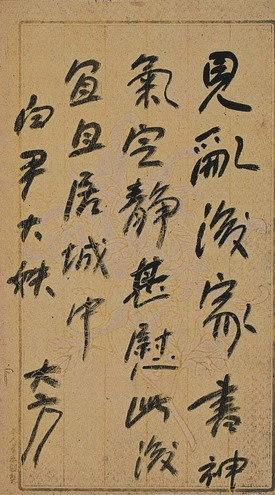 見亂後家書神
氣定靜甚慰此後
宜且居城中
尹大
大方